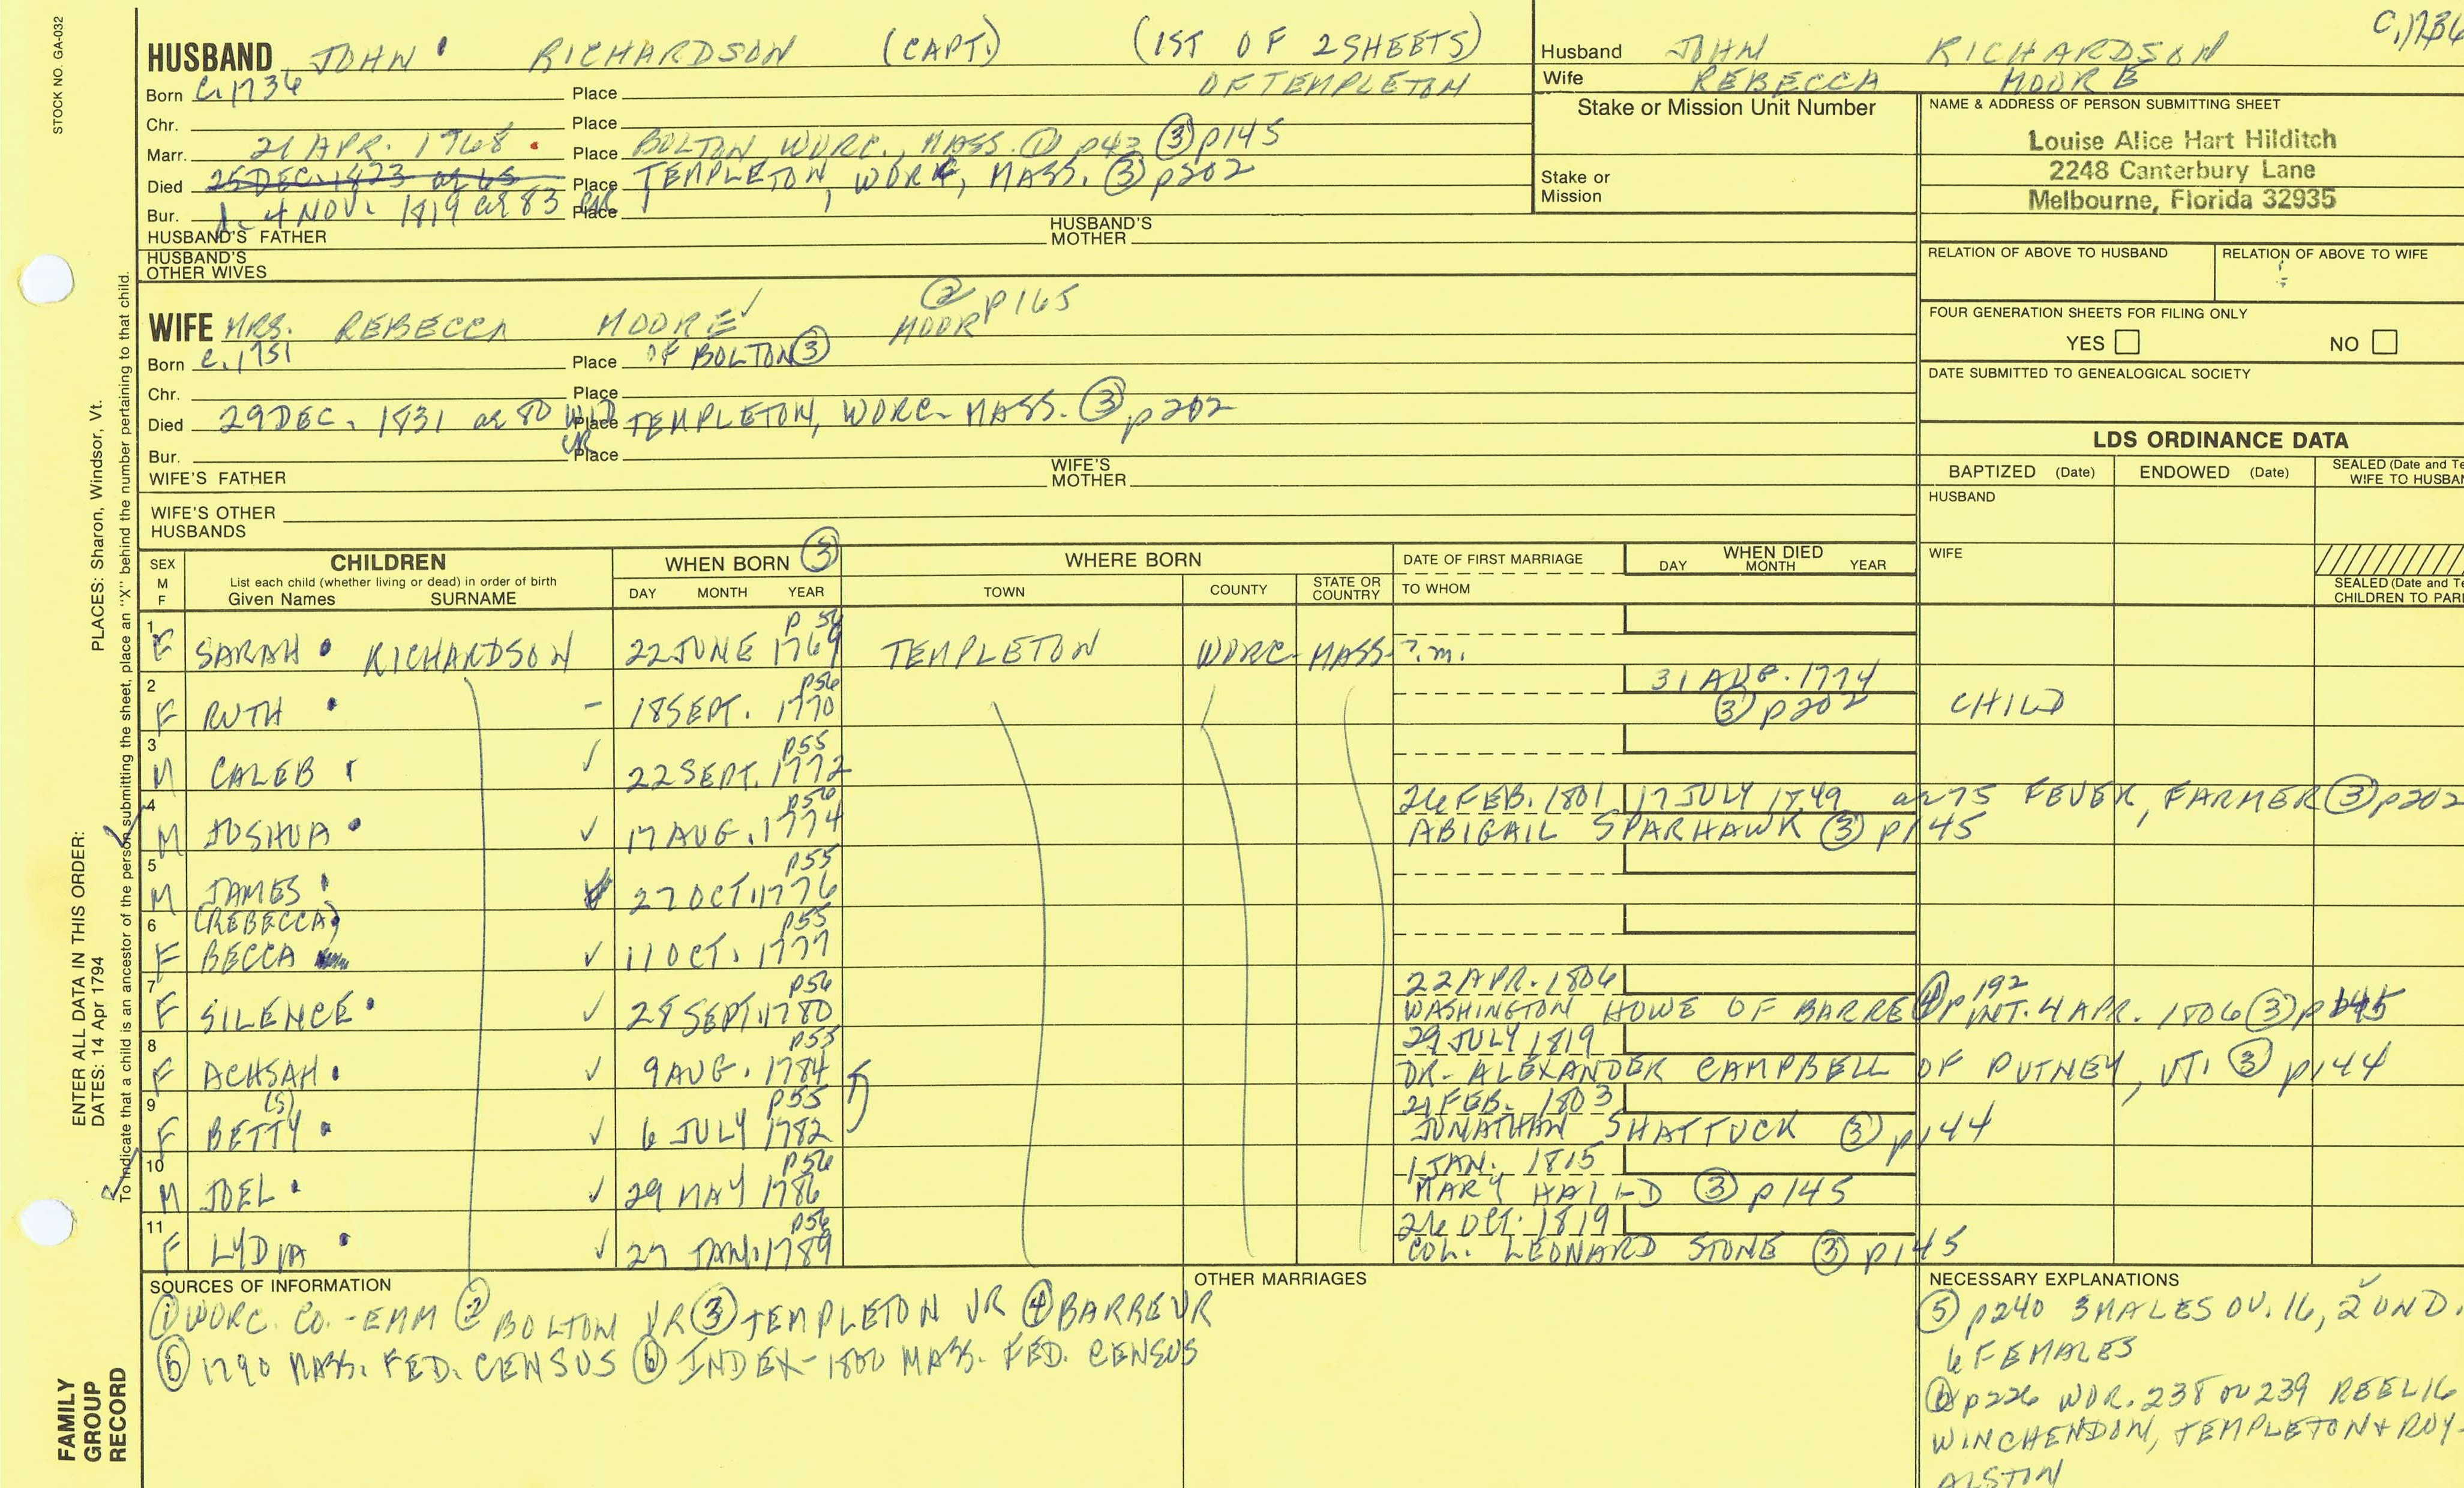 STOCK NO. GA-032
HUSBAND JOHN RICHARDSON (CAPT.) (1ST OF 2 SHEETS)
Born C. 1736 Place OF TEMPLETON
Chr. Place
Marr. 21 APR. 1768 Place BOLTON WORC., MASS. ① p43 ③ p145
Died 25 DEC. 1823 ae 65 Place TEMPLETON, WORC, MASS. ③ p202
Bur. d. 4 NOV. 1819 ae 83 Place
HUSBAND'S FATHER HUSBAND'S MOTHER
HUSBAND'S OTHER WIVES
WIFE MRS. REBECCA MOORE ✓ MOOR ② p165
Born C. 1751 Place OF BOLTON ③
Chr. Place
Died 29 DEC. 1831 ae 80 WID Place TEMPLETON, WORC- MASS. ③ p202
Bur. Place
WIFE'S FATHER WIFE'S MOTHER
WIFE'S OTHER HUSBANDS
Husband JOHN RICHARDSON C. 1736
Wife REBECCA MOORE
Stake or Mission Unit Number
Stake or Mission
NAME & ADDRESS OF PERSON SUBMITTING SHEET
Louise Alice Hart Hilditch
2248 Canterbury Lane
Melbourne, Florida 32935
RELATION OF ABOVE TO HUSBAND RELATION OF ABOVE TO WIFE
FOUR GENERATION SHEETS FOR FILING ONLY
YES NO
DATE SUBMITTED TO GENEALOGICAL SOCIETY
LDS ORDINANCE DATA
BAPTIZED (Date) ENDOWED (Date) SEALED (Date and Te
WIFE TO HUSBAN
HUSBAND
WIFE
SEALED (Date and Te
CHILDREN TO PAR
SEX M F CHILDREN WHEN BORN ③ WHERE BORN DATE OF FIRST MARRIAGE WHEN DIED
List each child (whether living or dead) in order of birth
Given Names SURNAME DAY MONTH YEAR TOWN COUNTY STATE OR COUNTRY TO WHOM DAY MONTH YEAR
p 56
1 F SARAH RICHARDSON 22 JUNE 1769 TEMPLETON WORC- MASS- ?.m.
p56 31 AUG. 1774
2 F RUTH - 18 SEPT. 1770 ③ p202 CHILD
p55
3 M CALEB ✓ 22 SEPT. 1772
p56 26 FEB. 1801 17 JULY 1849 ae 75 FEVER, FARMER ③ p202
4 M JOSHUA ✓ 17 AUG. 1774 ABIGAIL SPARHAWK ③ p145
p55
5 M JAMES ✓ 27 OCT. 1776
(REBECCA) p55
6 F BECCA ✓ 11 OCT. 1777
p56 22 APR. 1806 p 192
7 F SILENCE ✓ 28 SEPT. 1780 WASHINGTON HOWE OF BARRE ④ INT. 4 APR. 1806 ③ p145
p55 29 JULY 1819
8 F ACHSAH ✓ 9 AUG. 1784 DR- ALEXANDER CAMPBELL OF PUTNEY, VT. ③ p144
(S) p55 21 FEB. 1803
9 F BETTY ✓ 6 JULY 1782 JONATHAN SHATTUCK ③ p144
p56 1 JAN. 1815
10 M JOEL ✓ 29 MAY 1786 MARY ③ p145
p56 26 OCT. 1819
11 F LYDIA ✓ 27 JAN. 1789 COL. LEONARD STONE ③ p145
SOURCES OF INFORMATION
① WORC. CO.-EMM ② BOLTON VR ③ TEMPLETON VR ④ BARRE VR
⑤ 1790 MASS. FED. CENSUS ⑥ INDEX-1800 MASS. FED. CENSUS
OTHER MARRIAGES
NECESSARY EXPLANATIONS
⑤ p240 3 MALES OV. 16, 2 UND.
6 FEMALES
⑥ p226 WOR. 238 OV 239 REEL 16
WINCHENDON, TEMPLETON + ROY-
ALSTON
PLACES: Sharon, Windsor, Vt.
ENTER ALL DATA IN THIS ORDER:
DATES: 14 Apr 1794
To indicate that a child is an ancestor of the person submitting the sheet, place an "X" behind the number pertaining to that child.
FAMILY GROUP RECORD